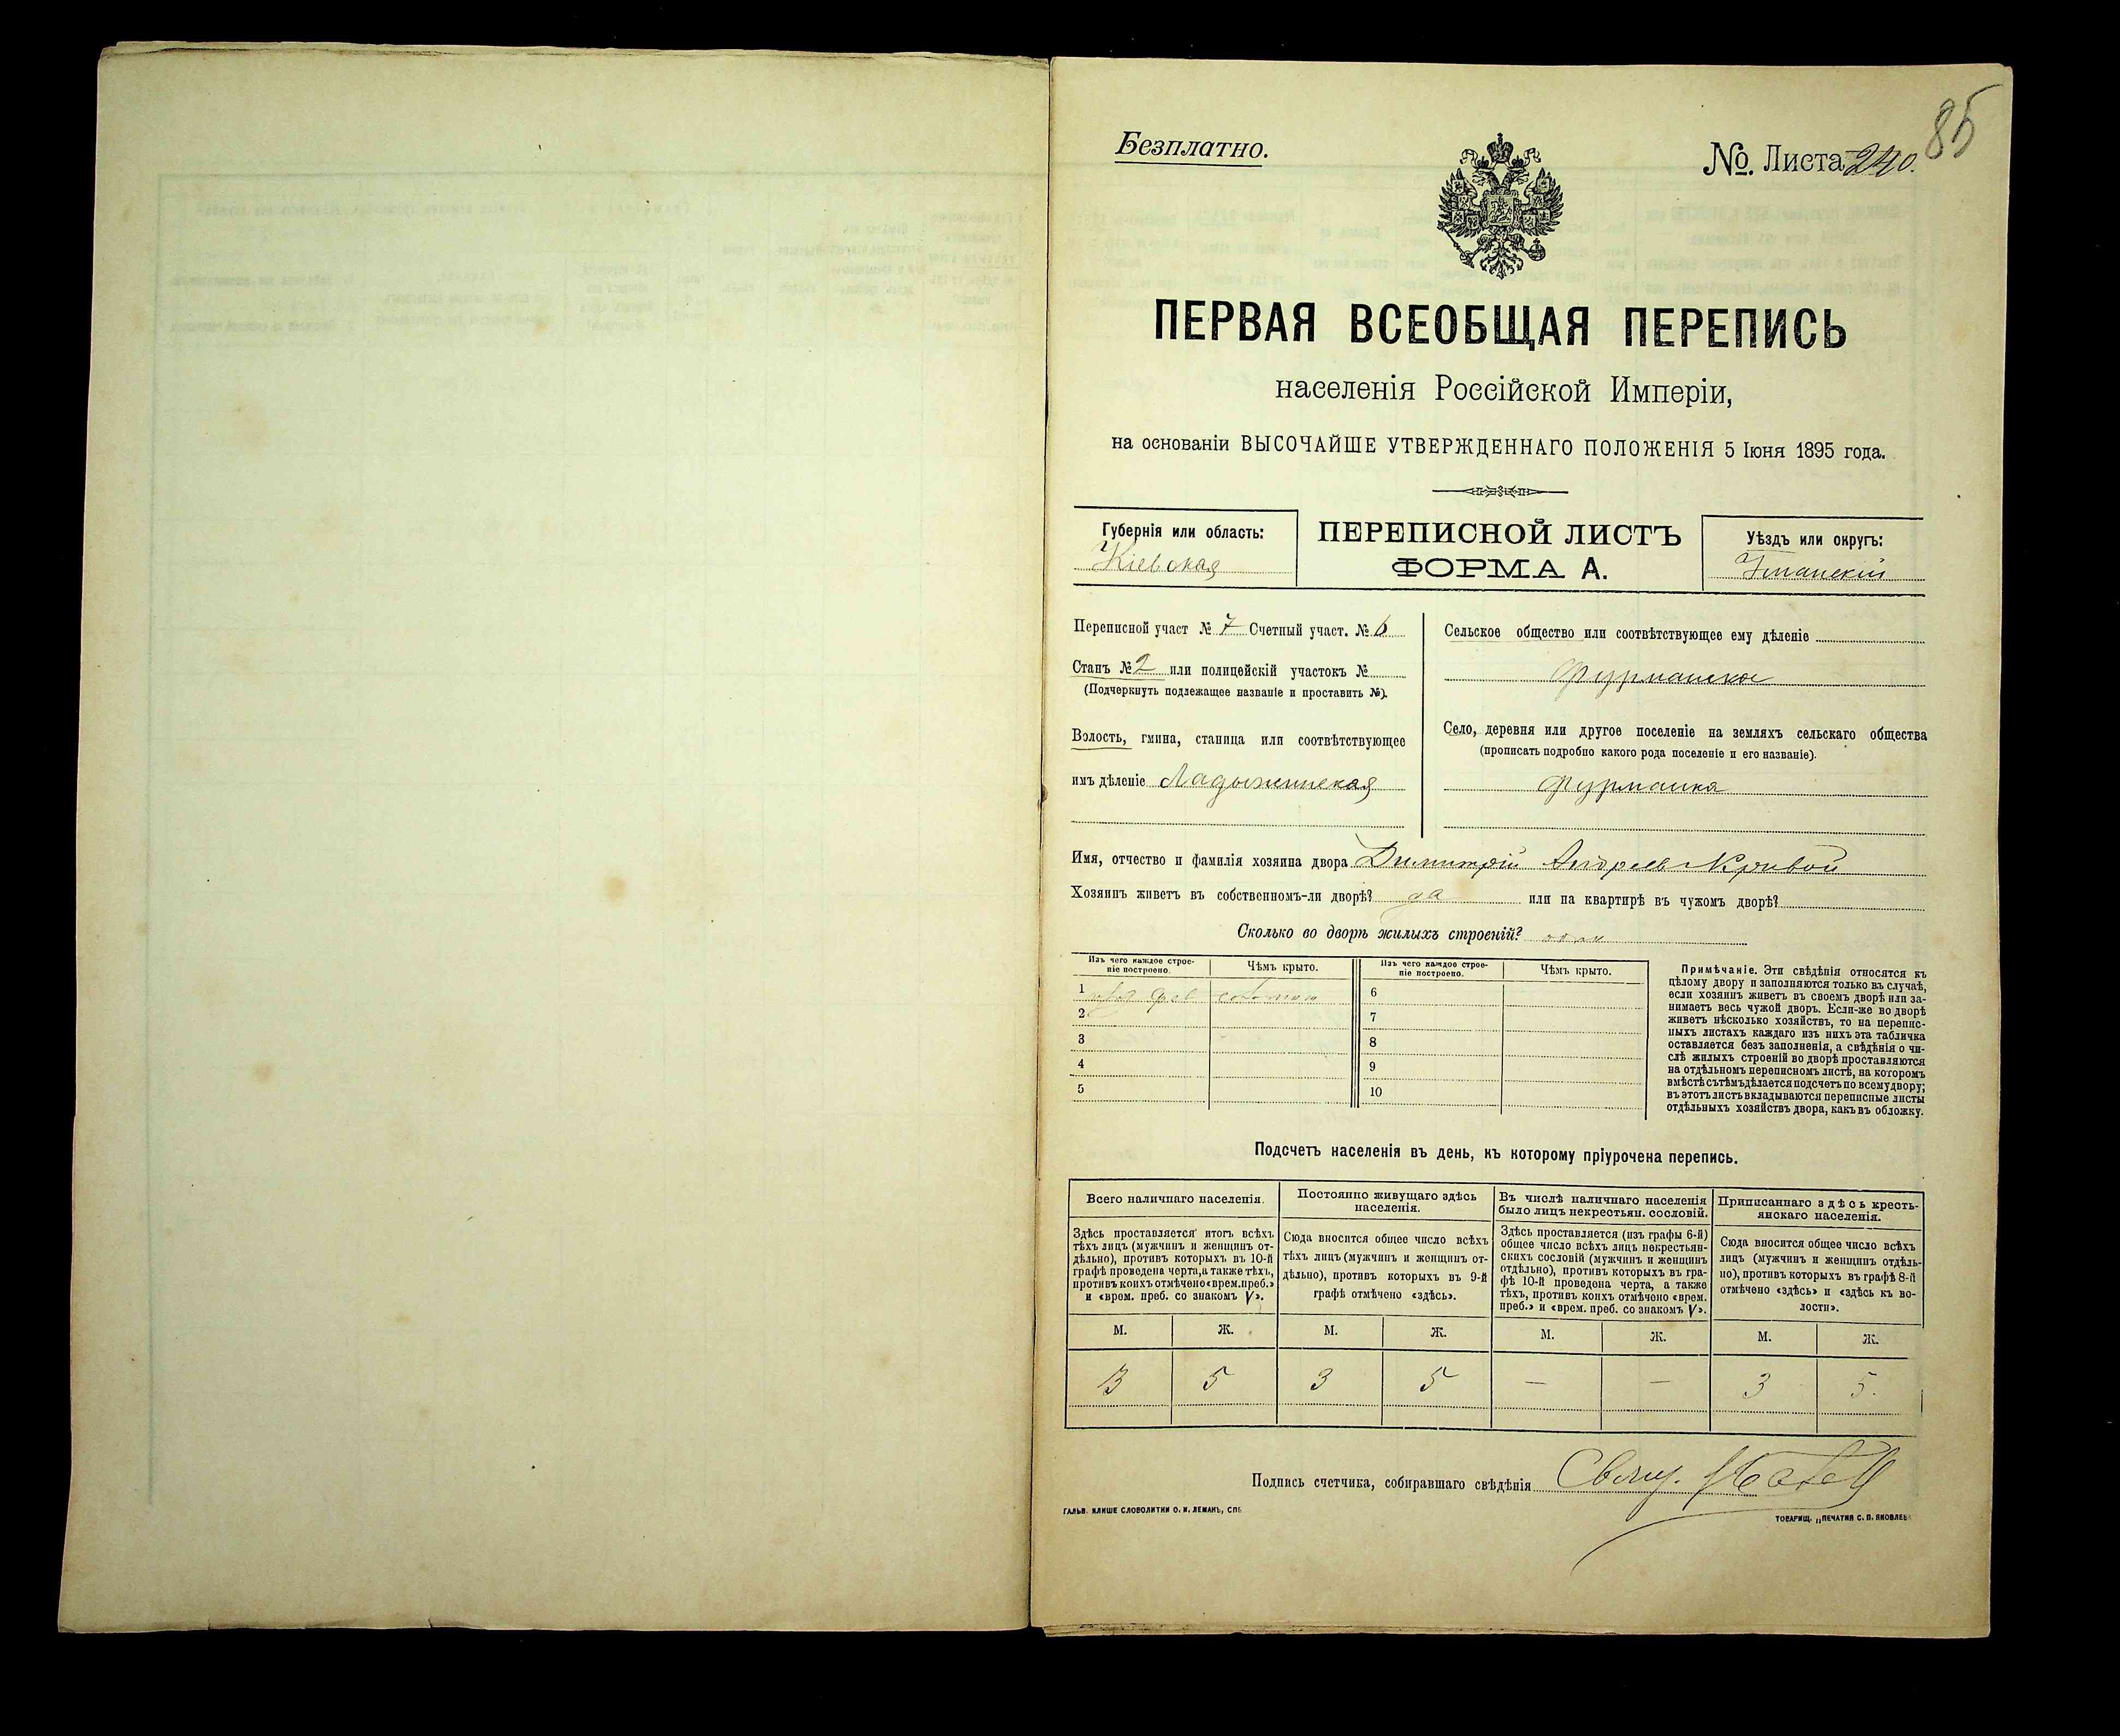 85
Безплатно.
№. Листа 240.
ПЕРВАЯ ВСЕОБЩАЯ ПЕРЕПИСЬ
населенія Россійской Имперіи,
на основаніи ВЫСОЧАЙШЕ УТВЕРЖДЕННАГО ПОЛОЖЕНІЯ 5 Іюня 1895 года.
Губернія или область:
Кіевская
ПЕРЕПИСНОЙ ЛИСТЪ
ФОРМА А.
Уѣздъ или округъ:
Уманскій
Переписной участ № 7 Счетный участ. № 6
Станъ № 2 или полицейскій участокъ №
(Подчеркнуть подлежащее названіе и проставить №).
Волость, гмина, станица или соотвѣтствующее
имъ дѣленіе Ладыжинская
Сельское общество или соотвѣтствующее ему дѣленіе
Фурманское
Село, деревня или другое поселеніе на земляхъ сельскаго общества
(прописать подробно какого рода поселеніе и его названіе).
Фурманка
Имя, отчество и фамилія хозяина двора Димитрій Кривой
Хозяинъ живетъ въ собственномъ-ли дворѣ? да или на квартирѣ въ чужомъ дворѣ?
Сколько во дворѣ жилыхъ строеній?
Изъ чего каждое строе-
ніе построено.
Чѣмъ крыто.
Изъ чего каждое строе-
ніе построено.
Чѣмъ крыто.
1 соломою
2
3
4
5
6
7
8
9
10
Примѣчаніе. Эти свѣдѣнія относятся къ
цѣлому двору и заполняются только въ случаѣ,
если хозяинъ живетъ въ своемъ дворѣ или за-
нимаетъ весь чужой дворъ. Если-же во дворѣ
живетъ нѣсколько хозяйствъ, то на перепис-
ныхъ листахъ каждаго изъ нихъ эта табличка
оставляется безъ заполненія, а свѣдѣнія о чи-
слѣ жилыхъ строеній во дворѣ проставляются
на отдѣльномъ переписномъ листѣ, на которомъ
вмѣстѣ съ тѣмъ дѣлается подсчетъ по всему двору;
въ этотъ листъ вкладываются переписные листы
отдѣльныхъ хозяйствъ двора, какъ въ обложку.
Подсчетъ населенія въ день, къ которому пріурочена перепись.
Всего наличнаго населенія.
Здѣсь проставляется итогъ всѣхъ
тѣхъ лицъ (мужчинъ и женщинъ от-
дѣльно), противъ которыхъ въ 10-й
графѣ проведена черта, а также тѣхъ,
противъ коихъ отмѣчено «врем. преб.»
и «врем. преб. со знакомъ V».
Постоянно живущаго здѣсь
населенія.
Сюда вносится общее число всѣхъ
тѣхъ лицъ (мужчинъ и женщинъ от-
дѣльно), противъ которыхъ въ 9-й
графѣ отмѣчено «здѣсь».
Въ числѣ наличнаго населенія
было лицъ некрестьян. сословій.
Здѣсь проставляется (изъ графы 6-й)
общее число всѣхъ лицъ некрестьян-
скихъ сословій (мужчинъ и женщинъ
отдѣльно), противъ которыхъ въ гра-
фѣ 10-й проведена черта, а также
тѣхъ, противъ коихъ отмѣчено «врем.
преб.» и «врем. преб. со знакомъ V».
Приписаннаго здѣсь кресть-
янскаго населенія.
Сюда вносится общее число всѣхъ
лицъ (мужчинъ и женщинъ отдѣль-
но), противъ которыхъ въ графѣ 8-й
отмѣчено «здѣсь» и «здѣсь къ во-
лости».
М. Ж. М. Ж. М. Ж. М. Ж.
3 5 3 5 — — 3 5.
Подпись счетчика, собиравшаго свѣдѣнія Свящ.
ГАЛЬВ. КЛИШЕ СЛОВОЛИТНИ О. И. ЛЕМАНЪ, СПБ
ТОВАРИЩ. „ПЕЧАТНЯ С. П. ЯКОВЛЕВА